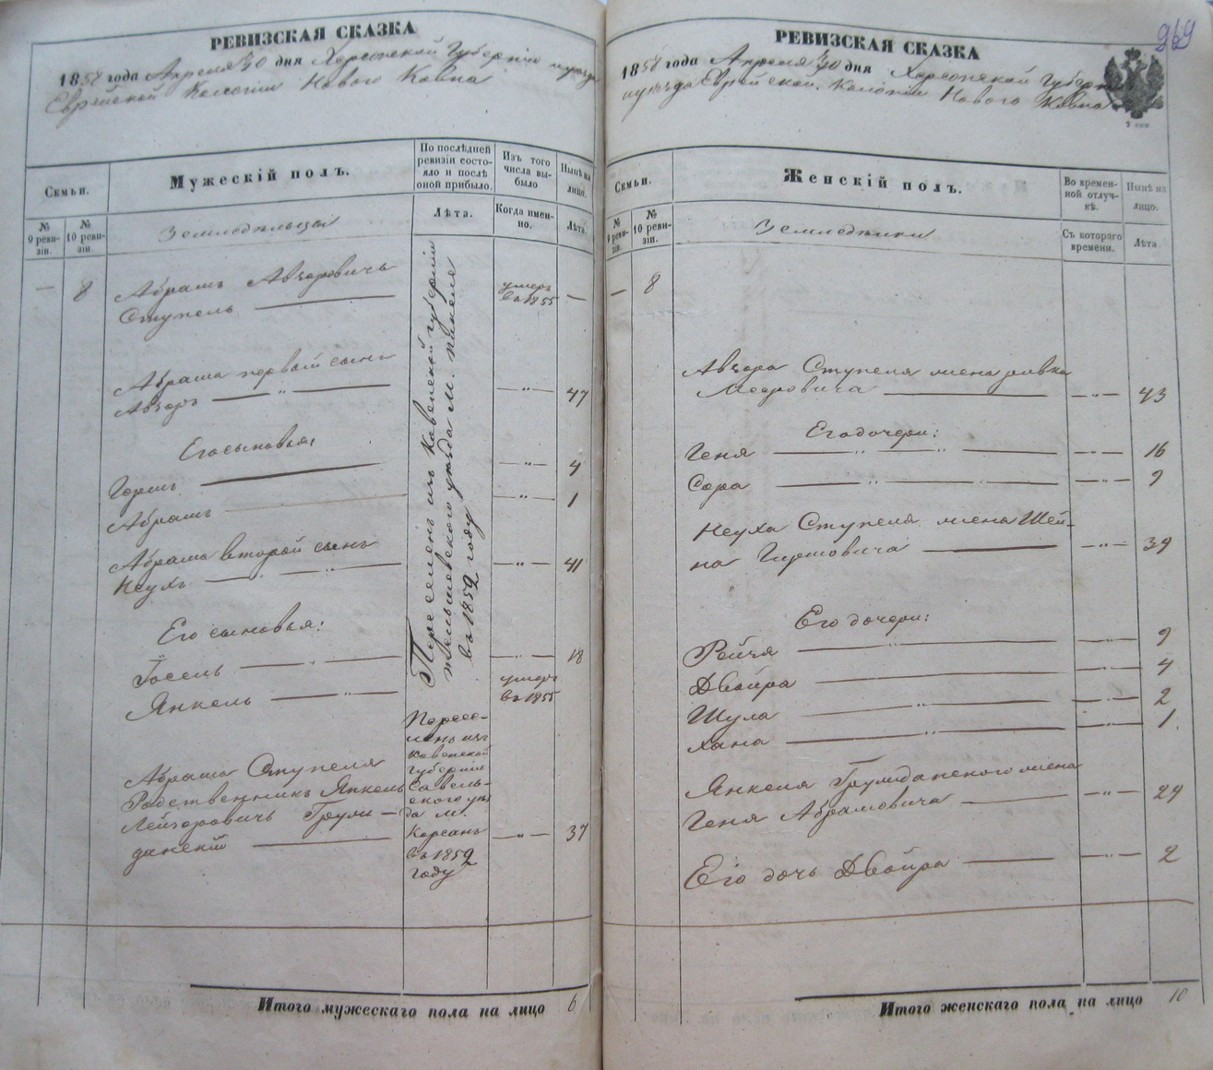 РЕВИЗСКАЯ СКАЗКА
1858 года Апреля 30 дня Херсонской Губернии и уезда
Еврейской Колонии Нового Ковна
Семьи.
Мужескій полъ.
По послѣдней ревизіи состояло и послѣ оной прибыло.
Изъ того числа выбыло
Нынѣ на лицо.
№ 9 ревизіи.
№ 10 ревизіи.
Земледѣльцы
Лѣта.
Когда именно.
Лѣта.
— 8 Абрамъ Авзоровичъ умеръ
Ступель — въ 1855 —
Абрама первый сынъ
Авзоръ — " — — " — 47
Его сыновья:
Горшъ — — " — 4
Абрамъ — — " — 1
Абрама второй сынъ
Неухъ — " — — " — 41
Его сыновья:
Іосель — " — — " — 18
Янкель — " — умеръ въ 1855
Переселенъ изъ Ковенской губерніи
Тельшевского уезда М.
въ 1852 году
Абрама Ступеля
Родственникъ Янкель
Лейзоровичъ Грум-
данскій — — " — 37
Переселенъ изъ
Ковенской
губерніи
Шавель-
ского уез-
да м.
въ 1852
году
Итого мужескаго пола на лицо 6
269
РЕВИЗСКАЯ СКАЗКА
1858 года Апреля 30 дня Херсонской Губерніи
и уезда Еврейской Колоніи Нового Ковна
Семьи.
Женскій полъ.
Во временной отлучкѣ.
Нынѣ на лицо.
№ 9 ревизіи.
№ 10 ревизіи.
Земледѣлки
Съ котораго времени.
Лѣта.
— 8
Авзора Ступеля жена Ривка
Меровича — — " — 43
Его дочери:
Геня — " — " — — " — 16
Сора — " — " — — " — 9
Неуха Ступеля жена Шей-
на Гиршовича — — " — 39
Его дочери:
Рейчя — " — — " — 9
Двойра — — " — 4
Шула — " — — " — 2
Хана — " — — " — 1.
Янкеля Грумданского жена
Геня Абрамовича — — " — 29
Его дочь Двойра — — " — 2
Итого женскаго пола на лицо 10